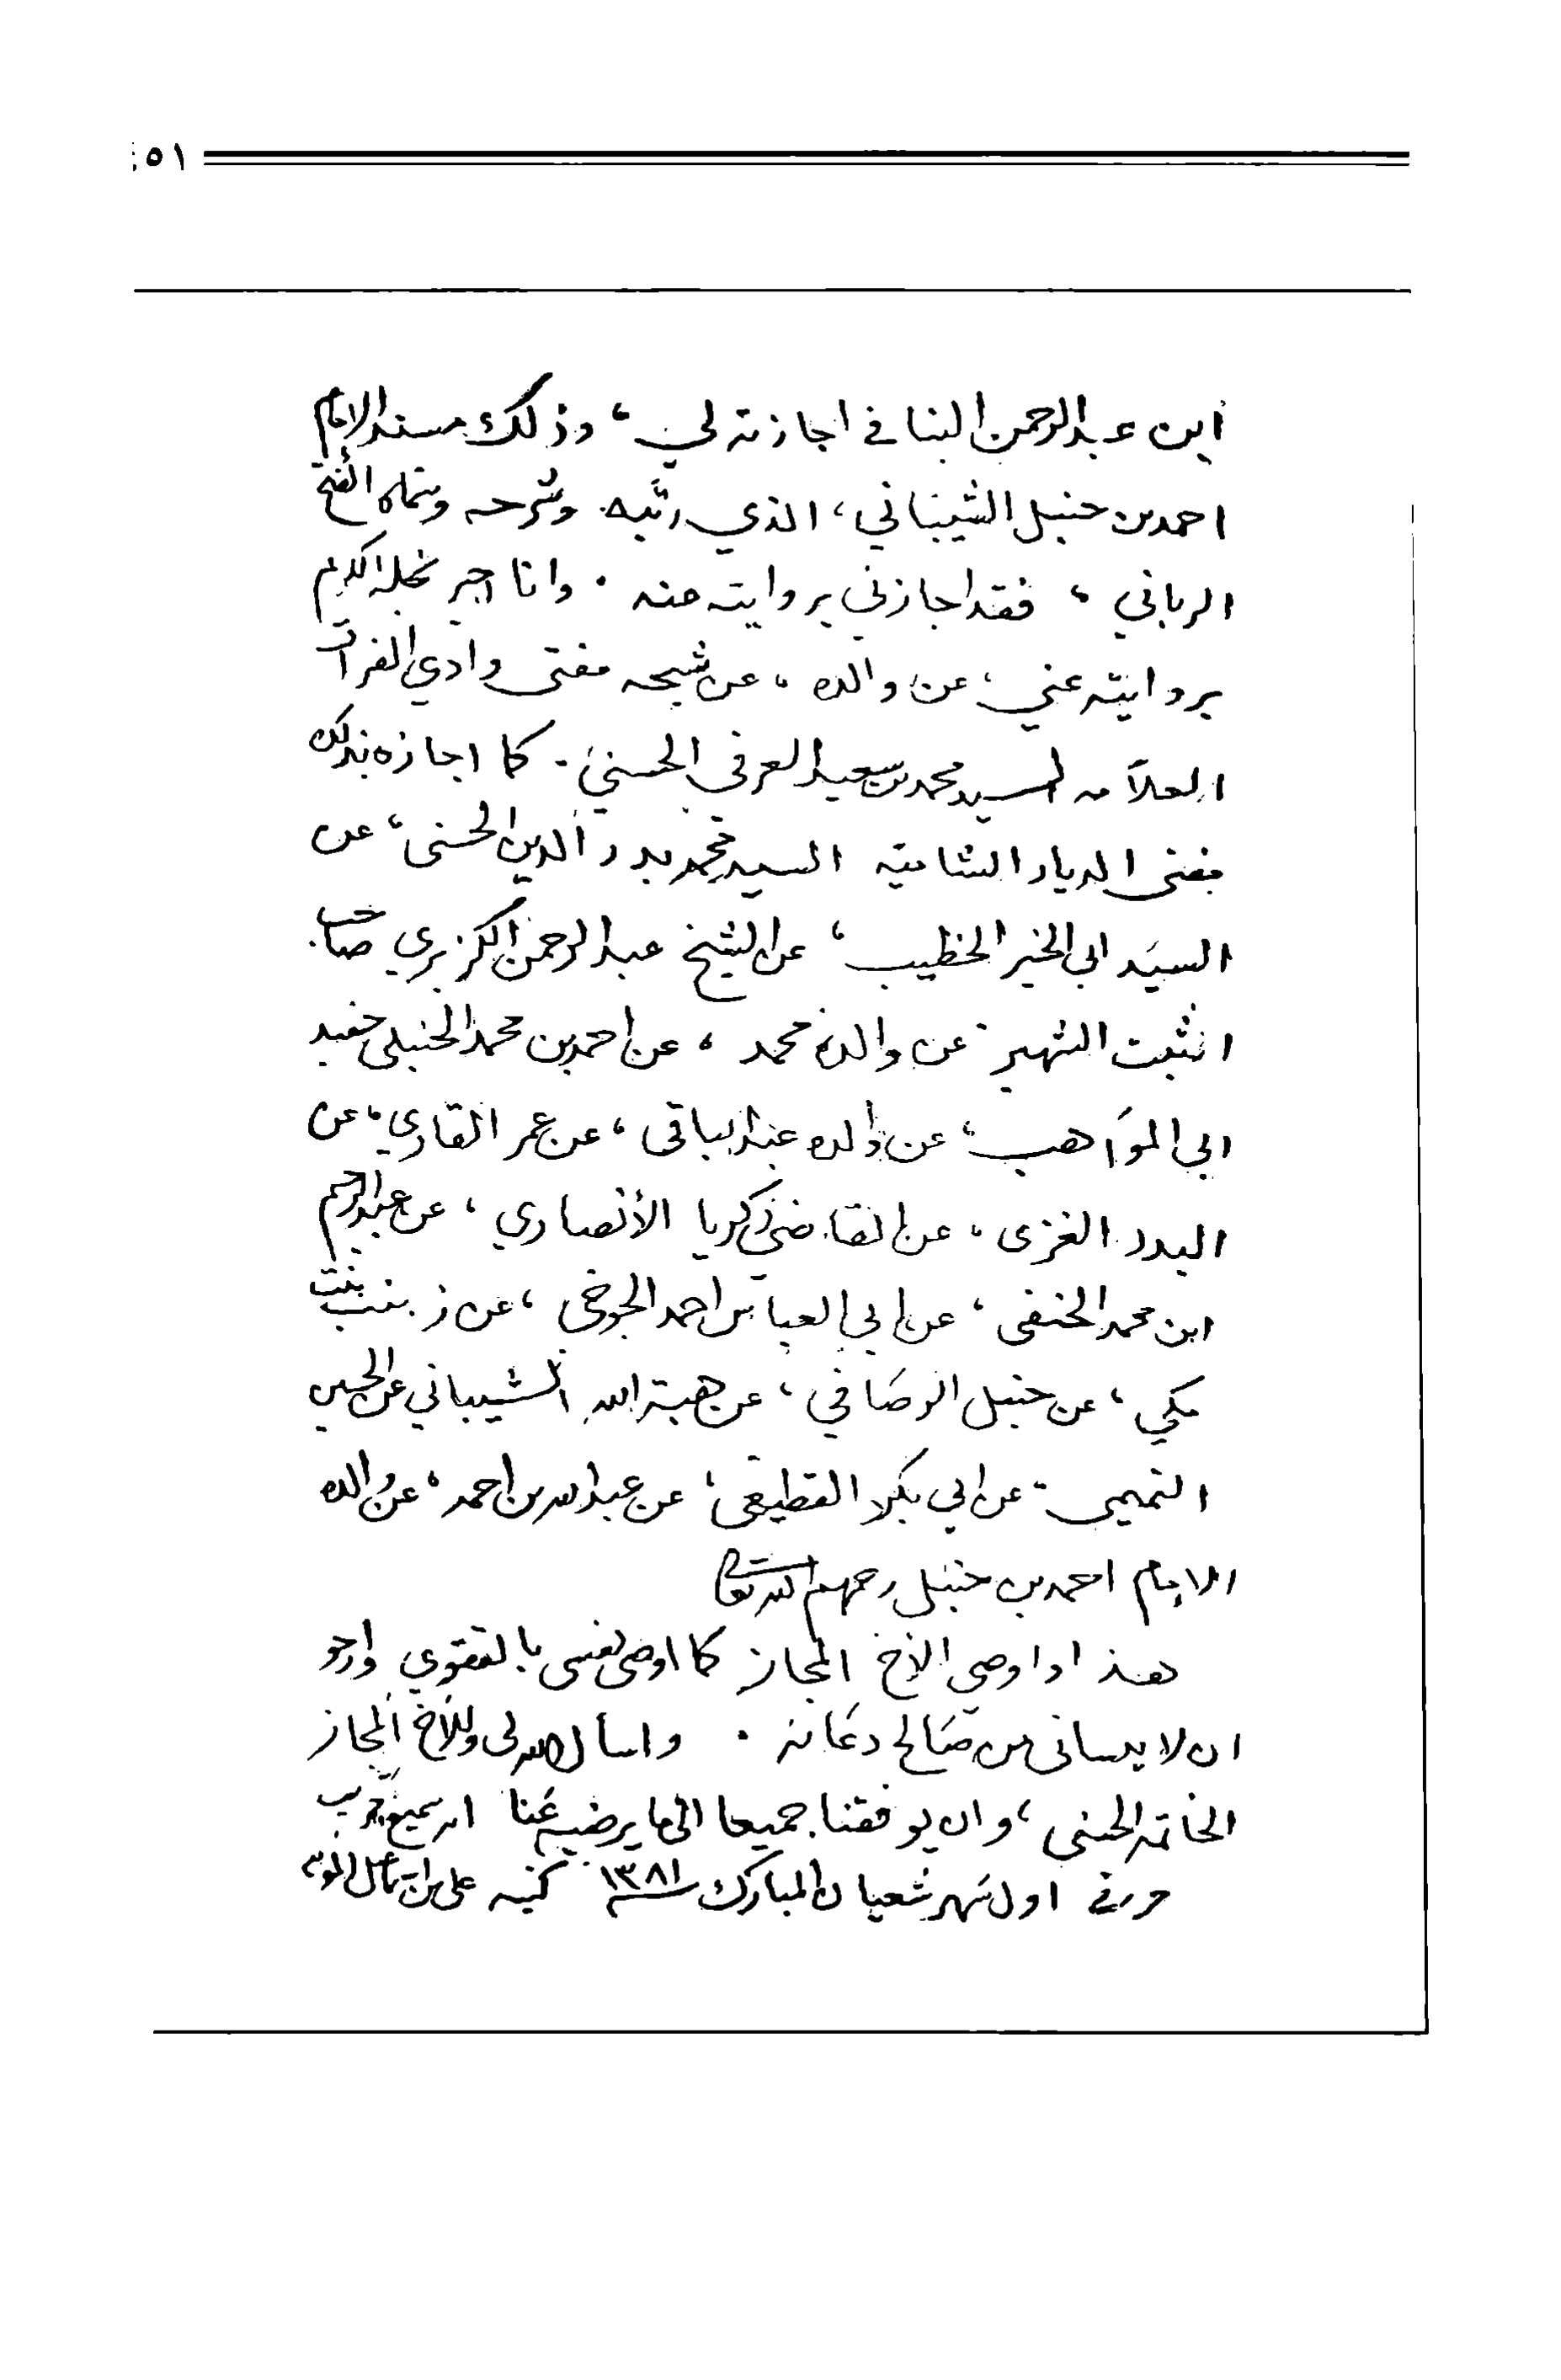 ٥١
ابن عبدالرحمن البنا في اجازته لي، وذلك مسند الامام
احمد بن حنبل الشيباني، الذي رتبه وشرحه وسماه الفتح
الرباني، فقد اجازني بروايته منه. وانا اجيز نجله الكريم
بروايته عني، عن والده، عن شيخه مفتي وادي الفرات
العلامه السيد محمد بن سعيد العرفي الحسني. كما اجازه بذلك
مفتى الديار الشامية السيد محمد بدر الدين الحسنى، عن
السيد ابي الخير الخطيب، عن الشيخ عبدالرحمن الكزبري صاحب
الثبت الشهير عن والده محمد، عن احمد بن محمد الحنبلي حفيد
ابي المواهب، عن والده عبدالباقى، عن عمر القاري، عن
البدر الغزى، عن القاضي زكريا الأنصاري، عن عبدالرحيم
ابن محمد الحنفى، عن ابي العباس احمد الجوخي، عن زينب بنت
مكي، عن حنبل الرصافي، عن هبة الله الشيباني عن الحسين
التميمي عن ابي بكر القطيعى، عن عبدالله بن احمد، عن والده
الامام احمد بن حنبل رحمهم الله تعالى
هذا واوصي الأخ المجاز كما اوصى نفسى بالتقوى وارجو
ان لا ينسانى من صالح دعائه. واسأل الله لى وللأخ المجاز
الخاتمة الحسنى، وان يوفقنا جميعا الى ما يرضيه عنا انه سميع مجيب
حرر في اول شهر شعبان المبارك ١٣٨١ كتبه على بن